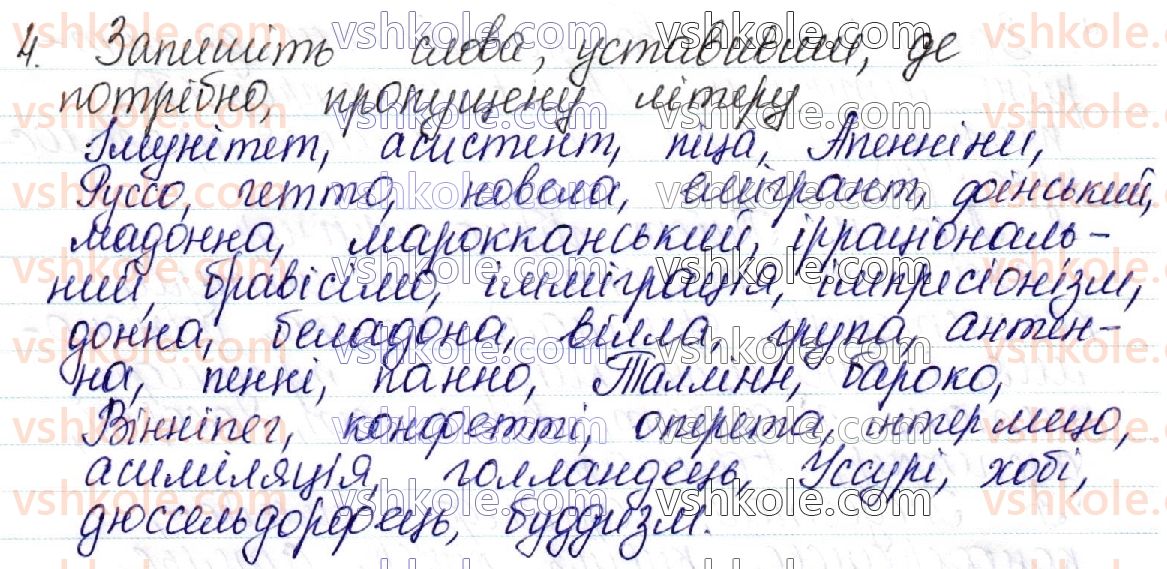 4. Запишіть слова, уставивши, де
потрібно, пропущену літеру
Імунітет, асистент, піца, Апенніни,
Руссо, гетто, новела, емігрант, фінський,
мадонна, марокканський, ірраціональ-
ний, бравісімо, імміграція, імпресіонізм,
донна, беладона, вілла, група, антен-
на, пенні, панно, Таллінн, бароко,
Вінніпег, конфетті, оперета, інтермецо,
асиміляція, голландець, Уссурі, хобі,
дюссельдорфець, буддизм.